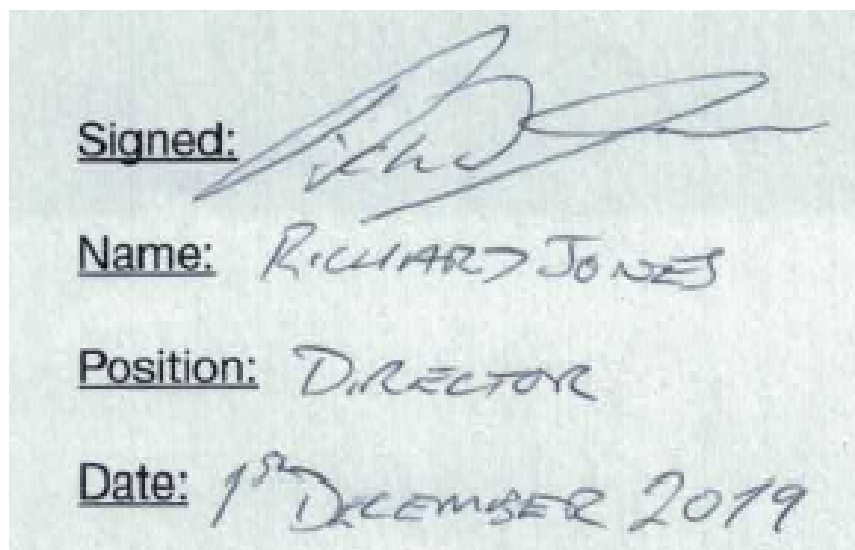 Signed:
Name: RICHARD JONES
Position: DIRECTOR
Date: 1st DECEMBER 2019